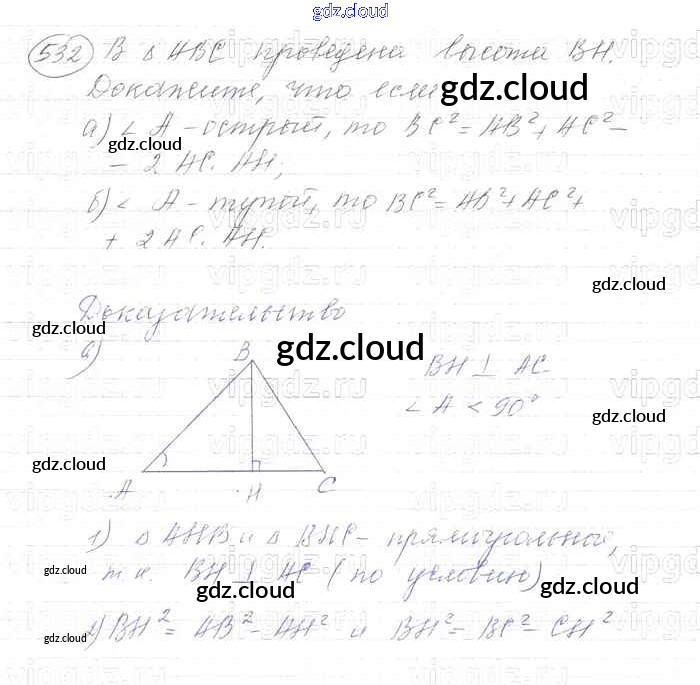 gdz.cloud
532 В △ ABC проведена высота BH.
Докажите, что если gdz.cloud
а) ∠ A - острый, то BC² = AB² + AC² -
- 2 AC · AH;
б) ∠ A - тупой, то BC² = AB² + AC² +
+ 2 AC · AH.
gdz.cloud
Доказательство
gdz.cloud
а) B gdz.cloud BH ⊥ AC
∠ A < 90°
gdz.cloud
gdz.cloud
A H C
1) △ AHB и △ BHC - прямоугольной,
gdz.cloud т.к. BH ⊥ AC (по условию)
gdz.cloud gdz.cloud
gdz.cloud 2) BH² = AB² - AH² и BH² = BC² - CH²